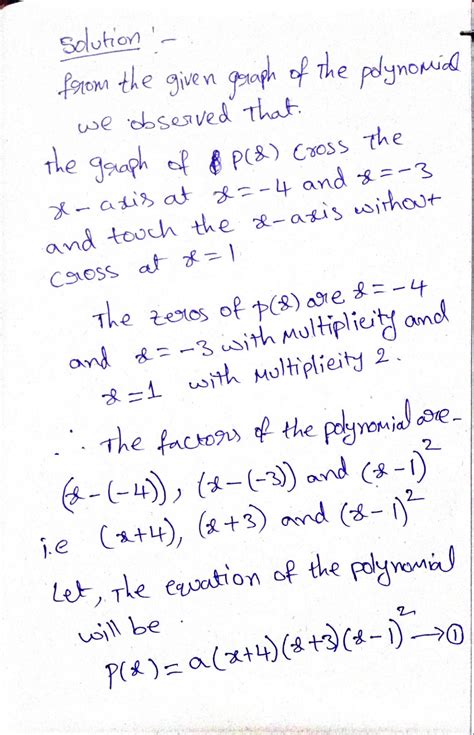 Solution :-
from the given graph of the polynomial
we observed that.
the graph of p(x) cross the
x-axis at x=-4 and x=-3
and touch the x-axis without
cross at x=1
The zeros of p(x) are x=-4
and x=-3 with multiplicity and
x=1 with multiplicity 2.
∴ The factors of the polynomial are-
(x-(-4)), (x-(-3)) and (x-1)²
i.e (x+4), (x+3) and (x-1)²
Let, The equation of the polynomial
will be.
p(x)=a(x+4)(x+3)(x-1)²→①